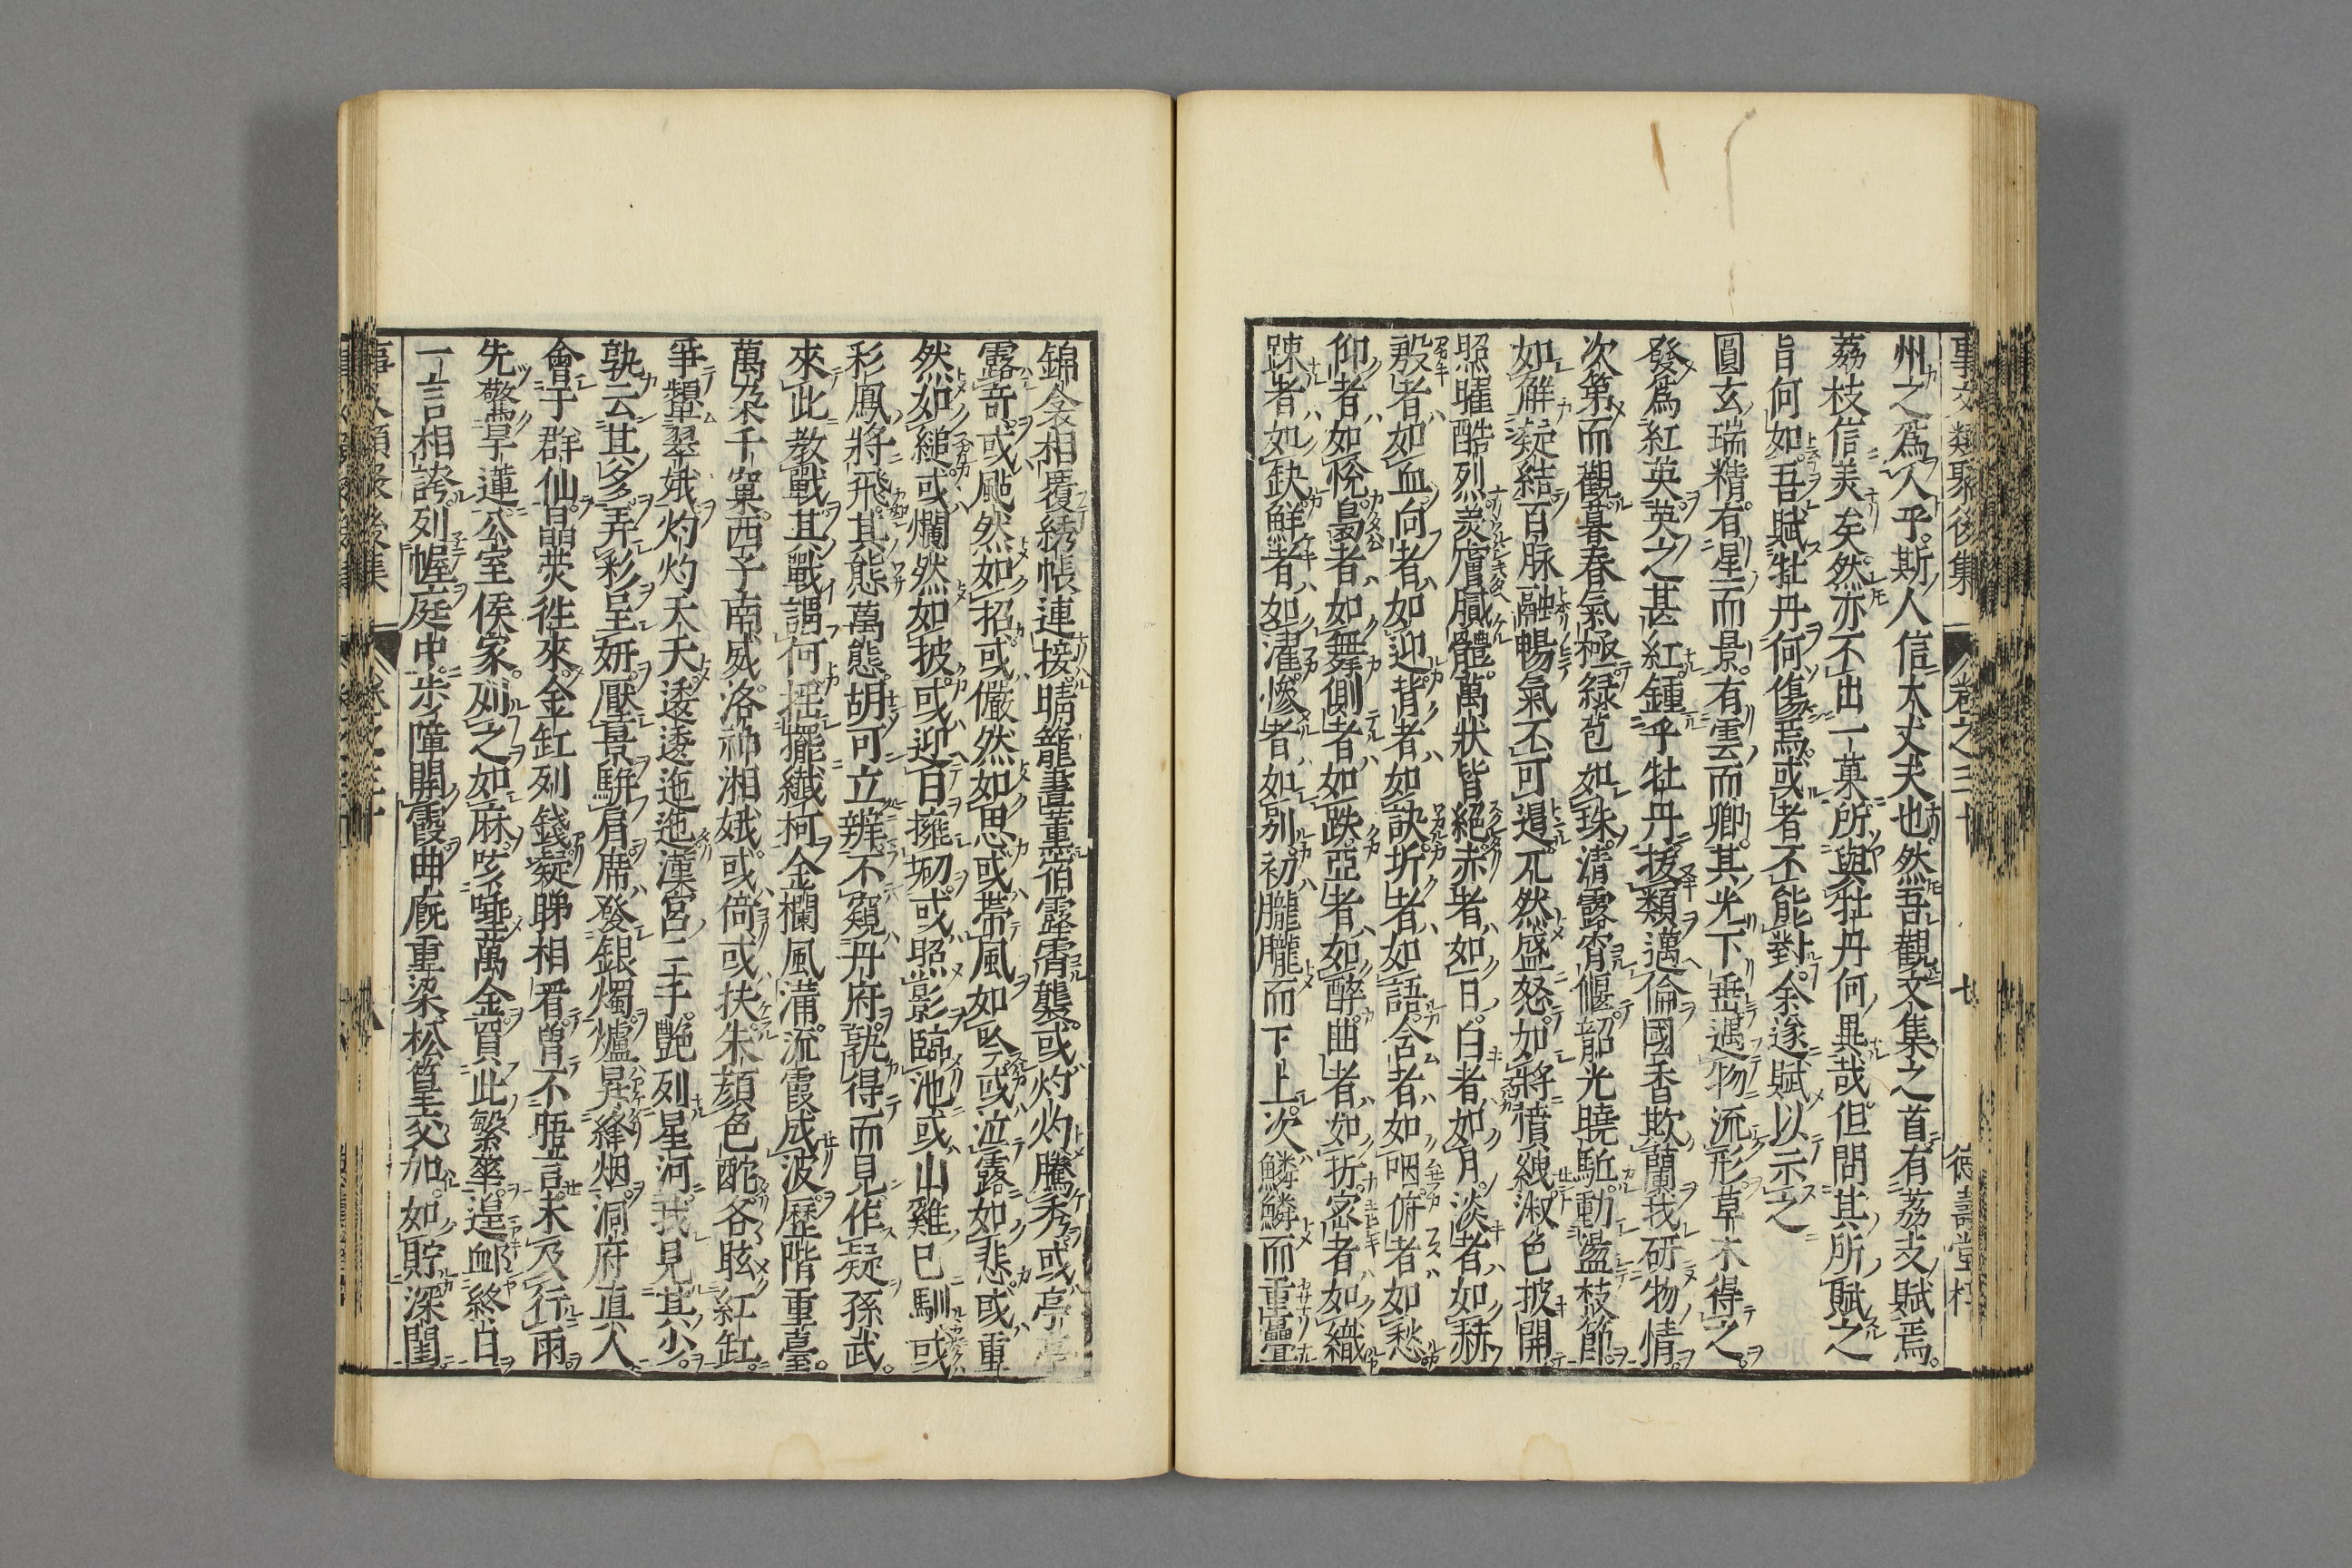 事文類聚後集 卷之三十 七 德壽堂梓
州之爲人乎斯人信大丈夫也然吾觀文集之首有荔支賦焉
荔枝信美矣然亦不出一菓所與牡丹何異哉但問其所賦之
旨何如吾賦牡丹何傷焉或者不能對余遂賦以示之
圓玄瑞精有星而景有雲而卿其光下垂遇物流形草木得之
發爲紅英英之甚紅鍾乎牡丹拔類邁倫國香欺蘭我研物情
次第而觀暮春氣極緑苞如珠清露宵偃韶光曉駈動盪枝節
如解凝結百脉融暢氣不可遏兀然盛怒如將憤絏淑色披開
照曜酷烈羙膚膩體萬狀皆絕赤者如日白者如月淡者如赫
殷者如血向者如迎背者如訣坼者如語含者如咽俯者如愁
仰者如悅裊者如舞側者如跌亞者如醉曲者如折宻者如織
踈者如缺鮮者如濯慘者如别初朧朧而下上次鱗鱗而重疊
錦衾相覆綉帳連接晴籠晝薰宿露宵襲或灼灼騰秀或亭亭
露竒或颭然如招或儼然如思或帶風如吟或泣露如悲或重
然如縋或爛然如披或迎日擁砌或照影臨池或山雞已馴或
彩鳳將飛其態萬態胡可立辨不窺丹府孰得而見作疑孫武
來此教戰其戰謂何揺擺纎柯金欄風滿流霞成波歷階重臺
萬朶千窠西子南威洛神湘娥或倚或扶朱顔色酡各眩紅缸
爭顰翠娥灼灼夭夭逶逶迤迤漢宮三千艶列星河我見其少
孰云其多弄彩呈妍厭景駢肩席發銀燭爐昇絳烟洞府直人
會于群仙晶熒徃來金缸列錢凝睇相看曽不晤言未及行雨
先驚旱蓮公室侯家列之如麻咳唾萬金買此繁華遑䘏終日
一言相誇列幄庭中步障開霞曲廡重梁松篁交加如貯深閨